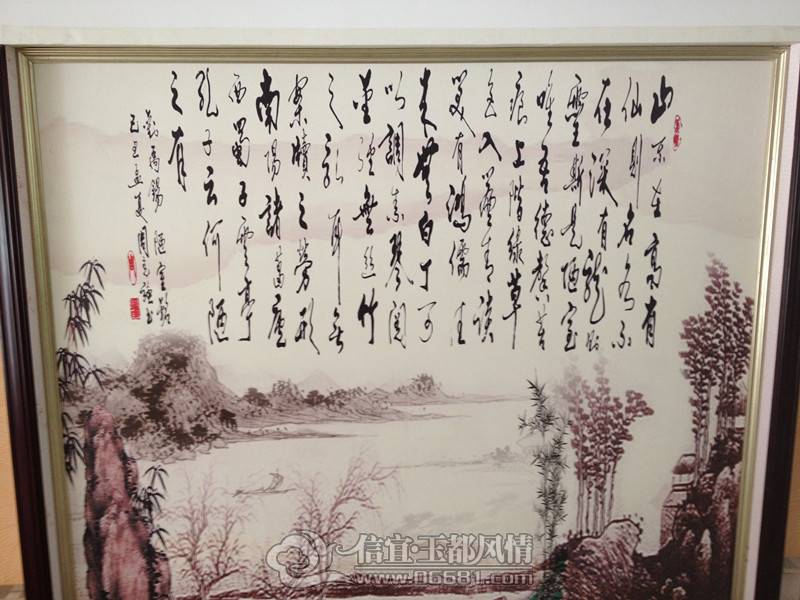 山不在高有
仙則名水不
在深有龍則
靈斯是陋室
唯吾德馨苔
痕上階綠草
色入簾青談
笑有鴻儒往
來無白丁可
以調素琴閱
金經無絲竹
之亂耳無
案牘之勞形
南陽諸葛廬
西蜀子雲亭
孔子云何陋
之有
劉禹錫 陋室銘
己丑孟夏周書
信宜·玉都风情
www.06681.com